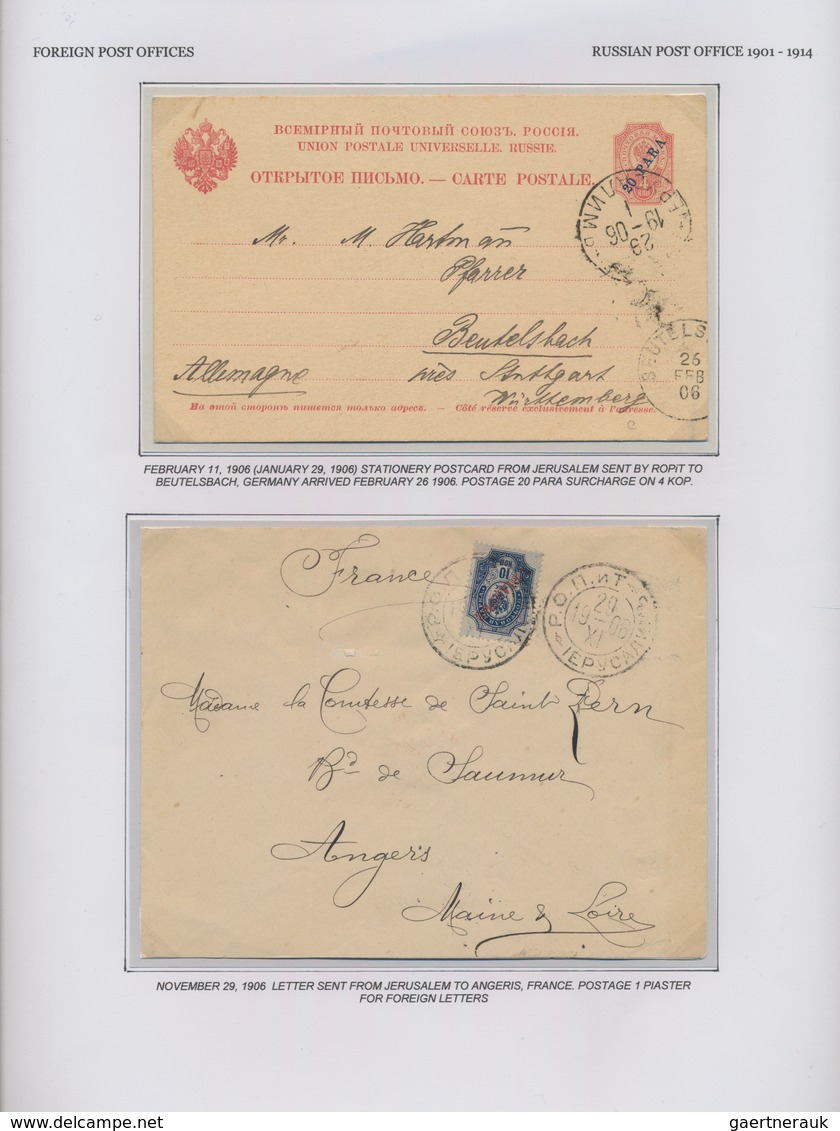 FOREIGN POST OFFICES
RUSSIAN POST OFFICE 1901 - 1914
ВСЕМІРНЫЙ ПОЧТОВЫЙ СОЮЗЪ. РОССІЯ.
UNION POSTALE UNIVERSELLE. RUSSIE.
ОТКРЫТОЕ ПИСЬМО. — CARTE POSTALE.
20 PARA
19 - 06
Mr. M. Hartmann
Pfarrer
Beutelsbach
Allemagne
près Stuttgart
Württemberg
26
FEB
06
На этой сторонѣ пишется только адресъ. — Côté réservé exclusivement à l'adresse.
FEBRUARY 11, 1906 (JANUARY 29, 1906) STATIONERY POSTCARD FROM JERUSALEM SENT BY ROPiT TO
BEUTELSBACH, GERMANY ARRIVED FEBRUARY 26 1906. POSTAGE 20 PARA SURCHARGE ON 4 KOP.
France
Р.О.П.иТ.
19 - 06
XI
ІЕРУСАЛИ
Madame la Comtesse de Saint Pern
Bd de Saumur
Angers
Maine & Loire
NOVEMBER 29, 1906 LETTER SENT FROM JERUSALEM TO ANGERIS, FRANCE. POSTAGE 1 PIASTER
FOR FOREIGN LETTERS
www.delcampe.net
gaertnerauk